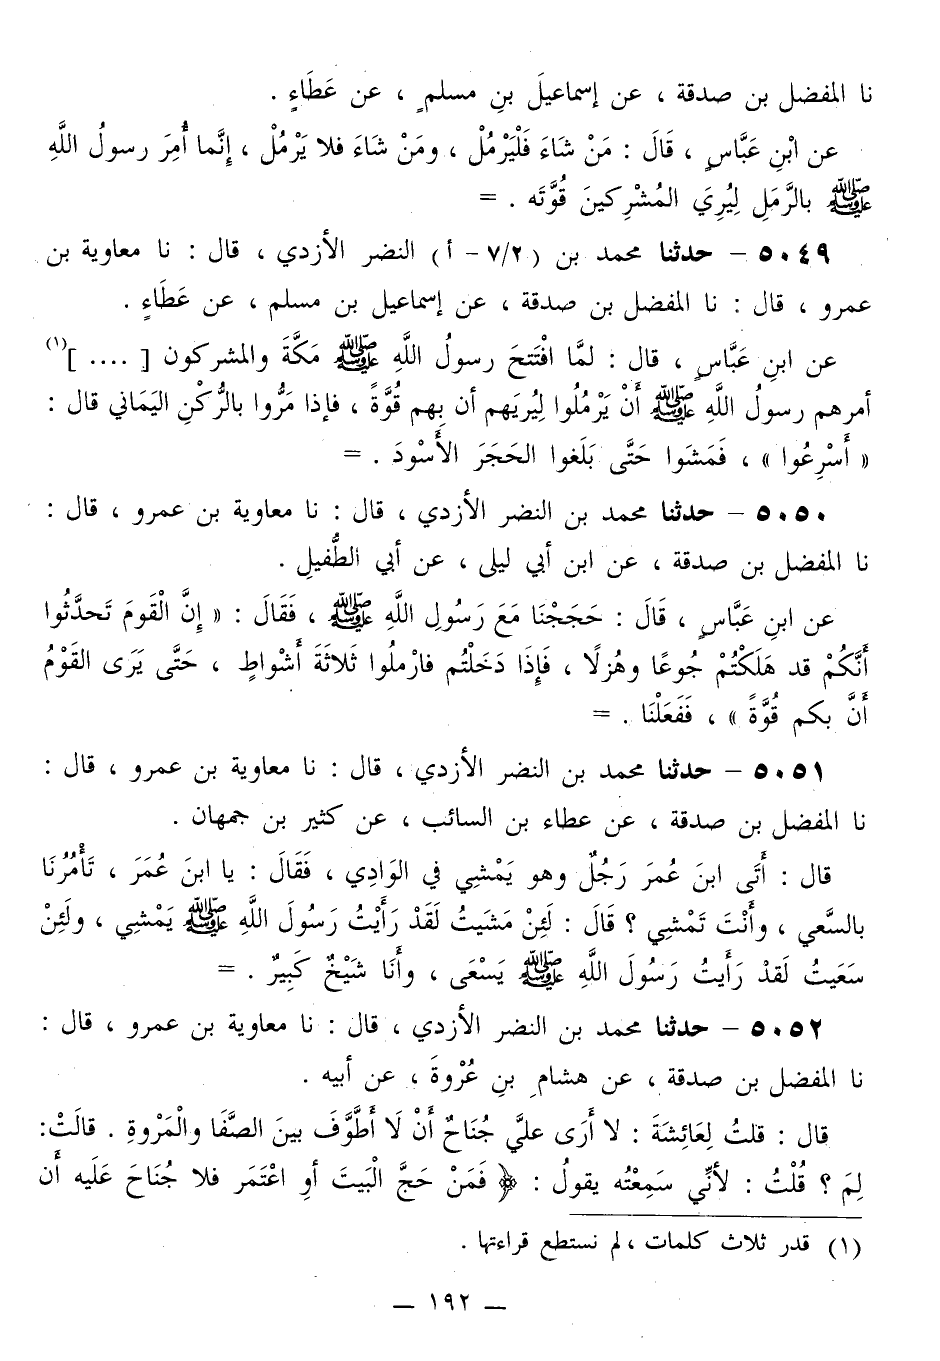 نا المفضل بن صدقة ، عن إسماعيلَ بنِ مسلمٍ ، عن عَطَاءٍ .
عن ابْنِ عَبَّاسٍ ، قَالَ : مَنْ شَاءَ فَلْيَرْمُلْ ، ومَنْ شَاءَ فلا يَرْمُلْ ، إنَّما أُمِرَ رسولُ اللَّهِ
ﷺ بالرَّمَلِ لِيُرِيَ المُشْرِكينَ قُوَّتَه . =
٥٠٤٩ – حدثنا محمد بن (٧/٢ – أ) النضر الأزدي ، قال : نا معاوية بن
عمرو ، قال : نا المفضل بن صدقة ، عن إسماعيل بن مسلم ، عن عَطَاءٍ .
عن ابنِ عَبَّاسٍ ، قال : لمَّا افْتَتحَ رسولُ اللَّهِ ﷺ مَكَّةَ والمشركون [ .... ](١)
أمرهم رسولُ اللَّهِ ﷺ أَنْ يَرْمُلُوا لِيُريَهم أن بِهم قُوَّةً ، فإذا مَرُّوا بالرُّكْنِ اليَماني قال :
« أَسْرِعُوا » ، فَمَشَوا حَتَّى بَلَغوا الحَجَرَ الأَسْودَ . =
٥٠٥٠ – حدثنا محمد بن النضر الأزدي ، قال : نا معاوية بن عمرو ، قال :
نا المفضل بن صدقة ، عن ابن أبي ليلى ، عن أبي الطُّفيلِ .
عن ابنِ عَبَّاسٍ ، قَالَ : حَجَجْنَا مَعَ رَسُولِ اللَّهِ ﷺ ، فَقَالَ : « إنَّ الْقَومَ تَحدَّثُوا
أَنَّكُمْ قد هَلَكْتُمْ جُوعًا وهُزلًا ، فَإِذَا دَخَلْتُم فارْملُوا ثَلاثَةَ أشْواطٍ ، حَتَّى يَرَى القَوْمُ
أَنَّ بكم قُوَّةً » ، فَفَعَلْنَا . =
٥٠٥١ – حدثنا محمد بن النضر الأزدي ، قال : نا معاوية بن عمرو ، قال :
نا المفضل بن صدقة ، عن عطاء بن السائب ، عن كثير بن جمهان .
قال : أَتَى ابنَ عُمرَ رَجُلٌ وهو يَمْشِي في الوَادِي ، فَقَالَ : يا ابنَ عُمَرَ ، تَأْمُرُنَا
بالسَّعي ، وأَنْتَ تَمْشِي ؟ قَالَ : لَئِنْ مَشَيتُ لَقَدْ رَأَيْتُ رَسُولَ اللَّهِ ﷺ يَمْشِي ، ولَئِنْ
سَعَيتُ لَقدْ رَأَيتُ رَسُولَ اللَّهِ ﷺ يَسْعَى ، وأَنَا شَيْخٌ كَبِيرٌ . =
٥٠٥٢ – حدثنا محمد بن النضر الأزدي ، قال : نا معاوية بن عمرو ، قال :
نا المفضل بن صدقة ، عن هشامِ بنِ عُرْوةَ ، عن أبيه .
قال : قلتُ لِعَائِشَةَ : لا أَرَى عليَّ جُنَاحٌ أَنْ لَا أَطَّوَّفَ بينَ الصَّفَا والْمَرْوةِ . قالَتْ:
لِمَ ؟ قُلْتُ : لأنِّي سَمِعْتُه يقولُ : ﴿ فَمَنْ حَجَّ الْبَيتَ أوِ اعْتَمَر فلا جُنَاحَ عَلَيه أَن
(١) قدر ثلاث كلمات ، لم نستطع قراءتها .
– ١٩٢ –